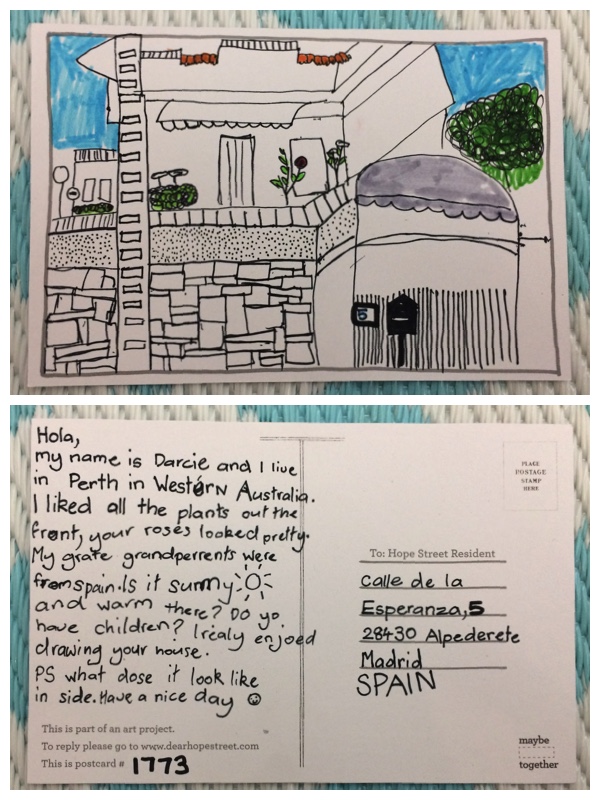 Hola,
my name is Darcie and I live
in Perth in Western Australia.
I liked all the plants out the
front, your roses looked pretty.
My grate grandperrents were
from spain. Is it sunny
and warm there? Do yo
have children? I realy enjoed
drawing your house.
PS what dose it look like
in side. Have a nice day
This is part of an art project.
To reply please go to www.dearhopestreet.com
This is postcard # 1773
PLACE
POSTAGE
STAMP
HERE
To: Hope Street Resident
Calle de la
Esperanza, 5
28430 Alpederete
Madrid
SPAIN
maybe
together